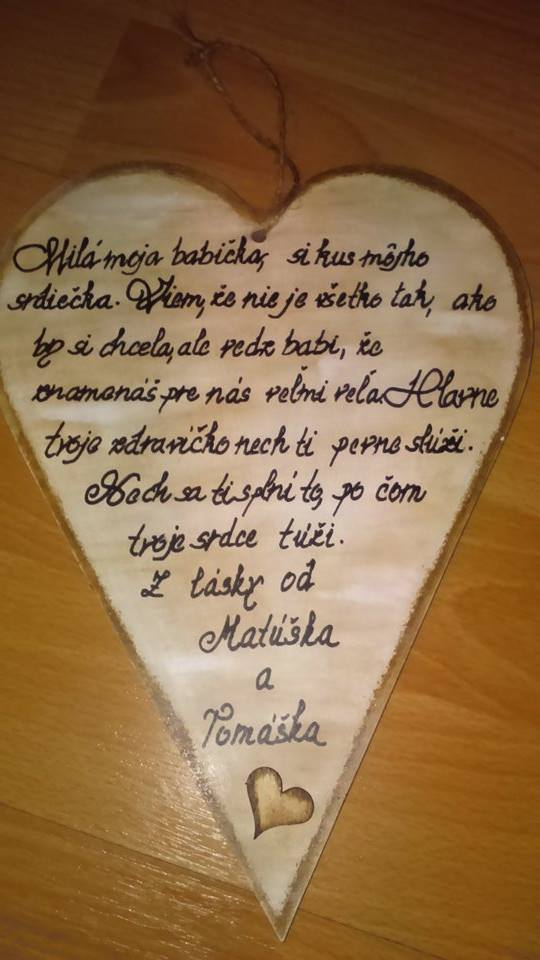 Milá moja babička, si kus môjho
srdiečka. Viem, že nie je všetko tak, ako
by si chcela, ale vedz babi, že
znamenáš pre nás veľmi veľa. Hlavne
tvoje zdravíčko nech ti pevne slúži.
Nech sa ti splní to, po čom
tvoje srdce túži.
Z lásky od
Matúška
a
Tomáška